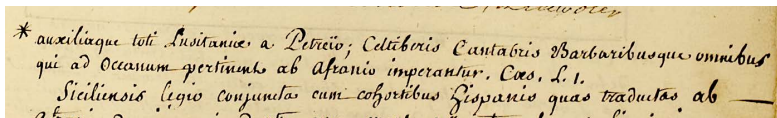 * auxiliaque toti Lusitaniæ a Petreïo; Celtiberis Cantabris Barbaribusque omnibus
qui ad Oceanum pertinent ab Afranio imperantur. Cæs. L. 1.
Siciliensis legio conjuncta cum cohortibus Hispanis quas traductas ab —